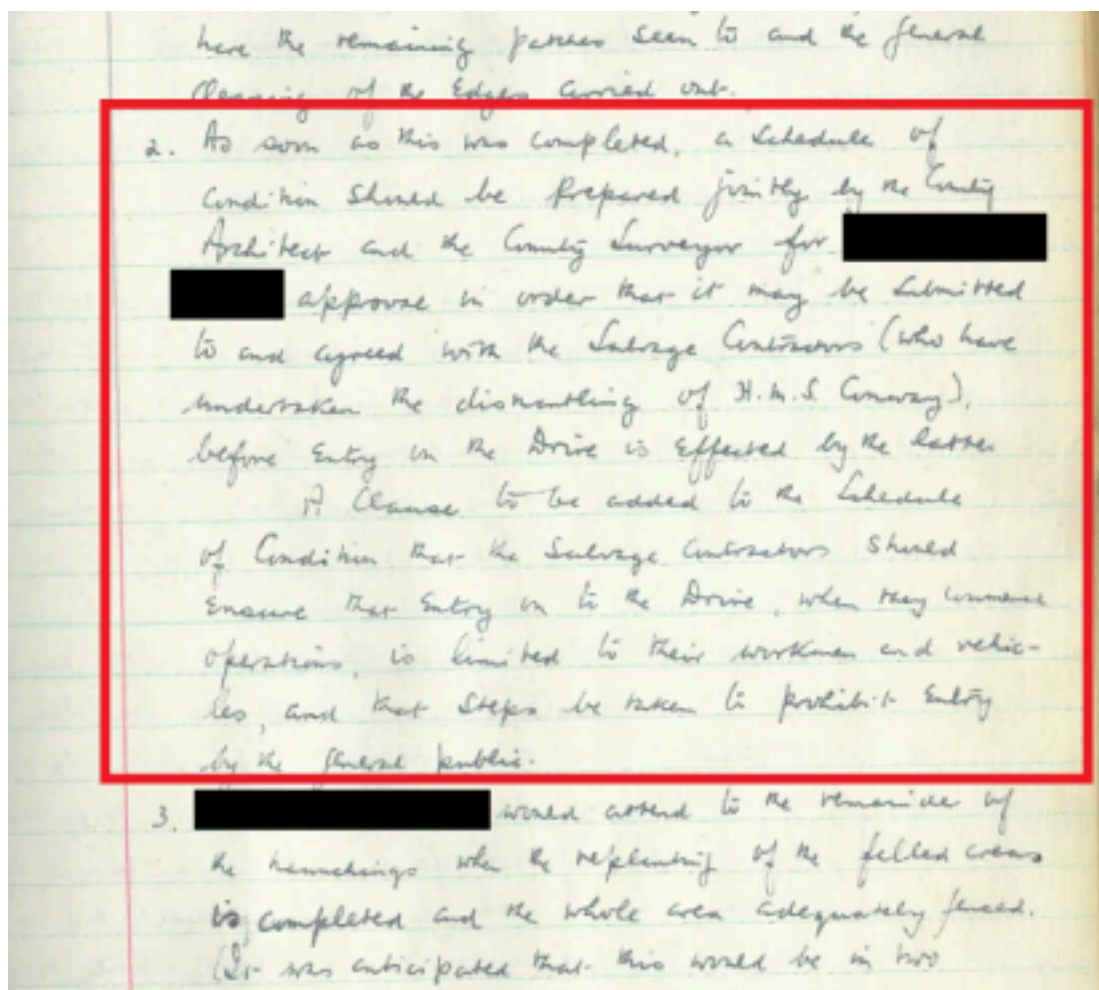 have the remaining patches seen to and the general
cleaning of the Edges carried out.
2. As soon as this was completed, a Schedule of
Condition should be prepared jointly by the County
Architect and the County Surveyor for
approval in order that it may be submitted
to and agreed with the Salvage Contractors (who have
undertaken the dismantling of H.M.S. Conway),
before Entry on the Drive is Effected by the latter
A Clause to be added to the Schedule
of Condition that the Salvage Contractors should
Ensure that Entry on to the Drive, when they commence
operations, is limited to their workmen and vehic-
les, and that Steps be taken to prohibit Entry
by the general public.
3. would attend to the remainder of
the haunchings when the replanting of the felled areas
is completed and the whole area adequately fenced.
(It was anticipated that this would be in two